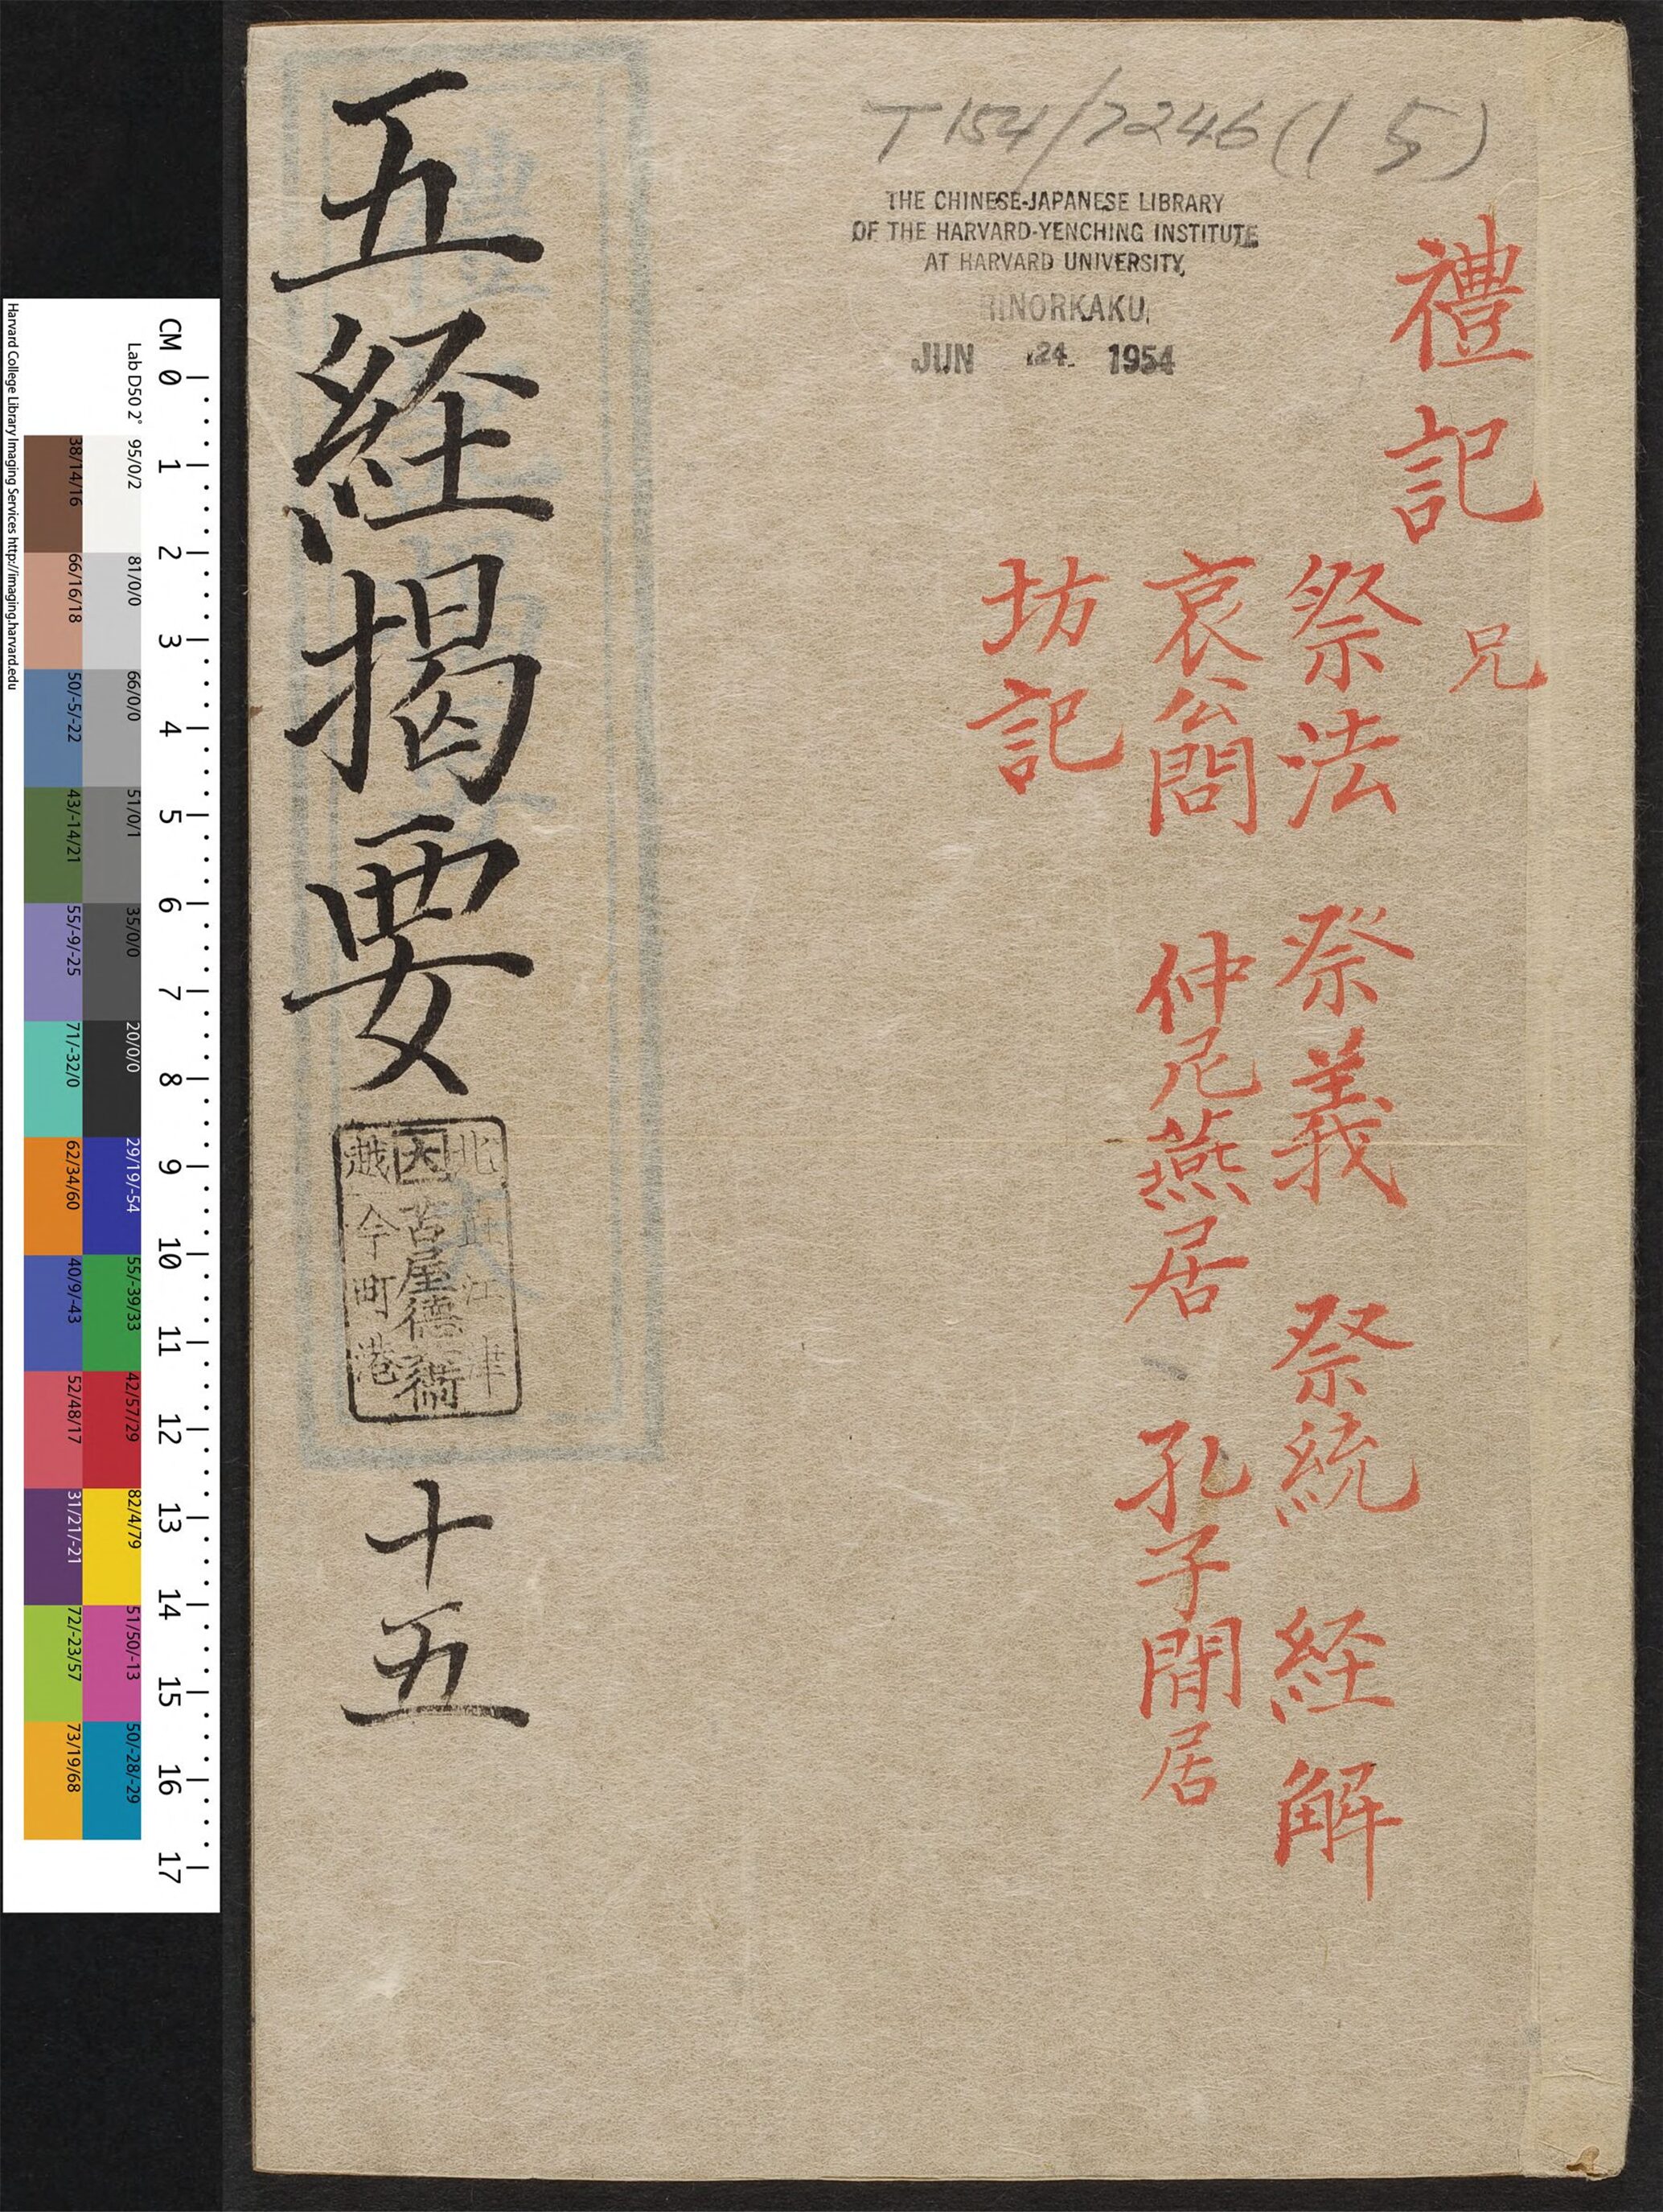 T154/7246(15)
THE CHINESE-JAPANESE LIBRARY
OF THE HARVARD-YENCHING INSTITUTE
AT HARVARD UNIVERSITY
JUN 24 1954
禮記
兄
祭法 祭義 祭統 経解
哀公問 仲尼燕居 孔子閒居
坊記
五経揭要
北 江津
大 古屋德衞
越今町港
十五
CM 0 1 2 3 4 5 6 7 8 9 10 11 12 13 14 15 16 17
Lab D50 2° 95/0/2 81/0/0 66/0/0 51/0/1 35/0/0 20/0/0 29/19/-54 55/-39/33 42/57/29 82/4/79 51/50/-13 50/-28/-29
38/14/16 66/16/18 50/-5/-22 43/-14/21 55/-9/-25 71/-32/0 62/34/60 40/9/-43 52/48/17 31/21/-21 72/-23/57 73/19/68
Harvard College Library Imaging Services http://imaging.harvard.edu